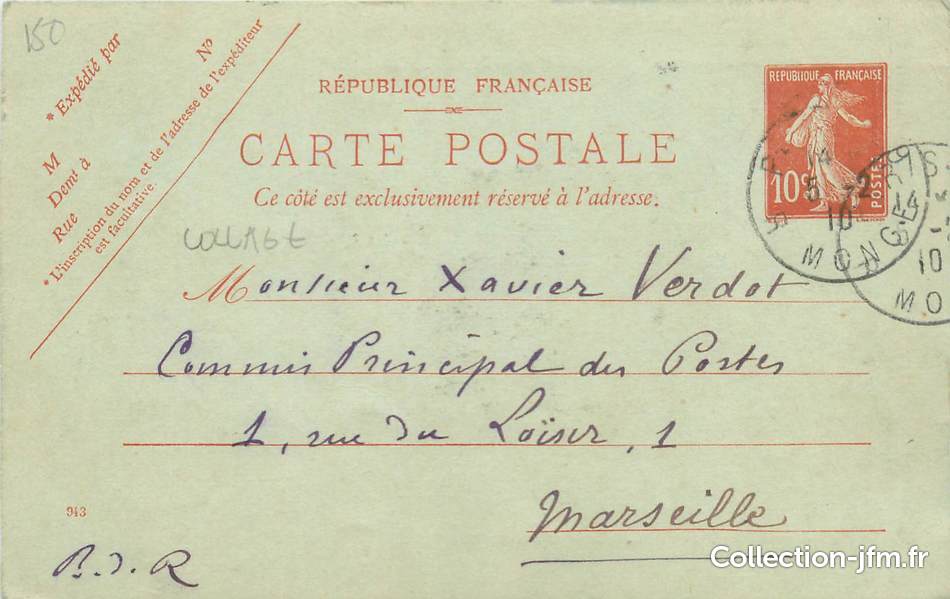 150
* Expédié par
N°
M
Demt à
Rue
* L'inscription du nom et de l'adresse de l'expéditeur
est facultative.
RÉPUBLIQUE FRANÇAISE
CARTE POSTALE
Ce côté est exclusivement réservé à l'adresse.
RÉPUBLIQUE FRANÇAISE
10c
POSTES
MONGE
COLLAGE
Monsieur Xavier Verdot
Commis Principal des Postes
1, rue du Loisir, 1
Marseille
943
B. d. R
Collection-jfm.fr